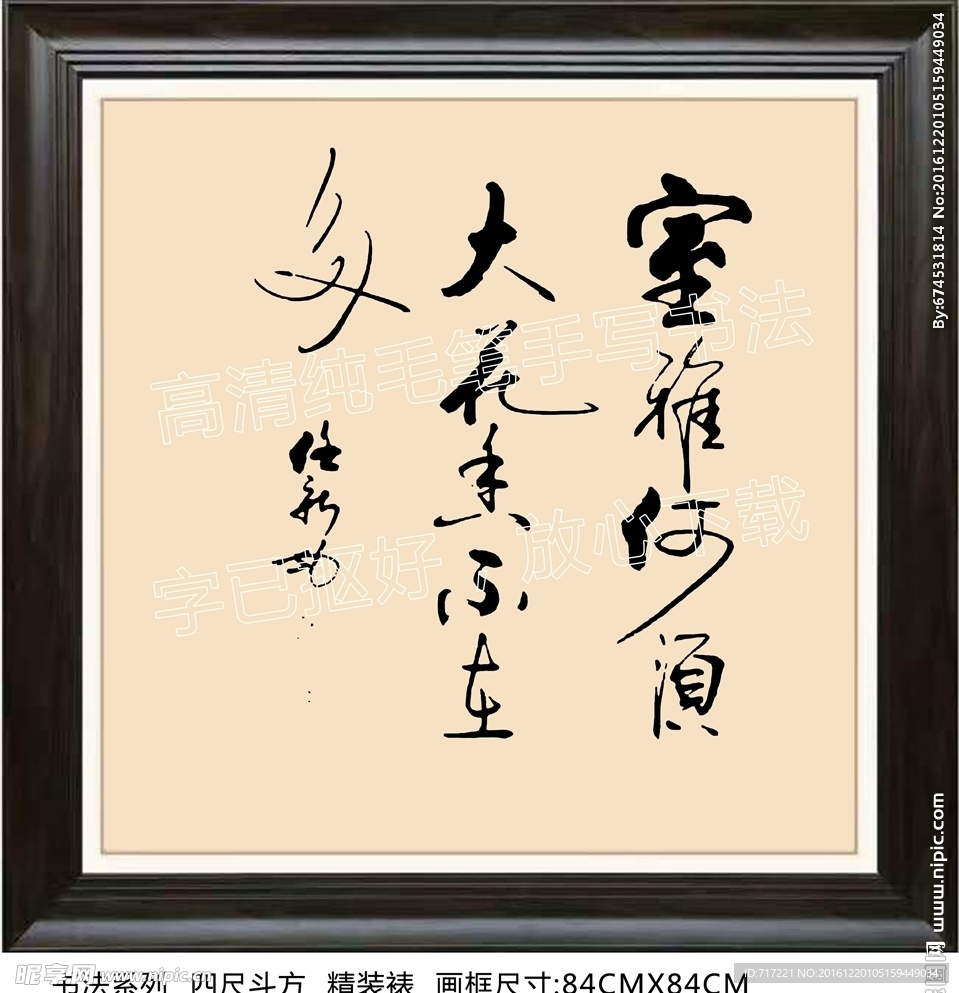 室雅何须
大花香不在
多
任新
高清纯毛笔手写书法
字已抠好 放心下载
By:674531814 No:20161220105159449034
www.nipic.com 昵图网
昵享网 www.nipic.cn
ID:717221 NO:20161220105159449034
书法系列 四尺斗方 精装裱 画框尺寸:84CMX84CM